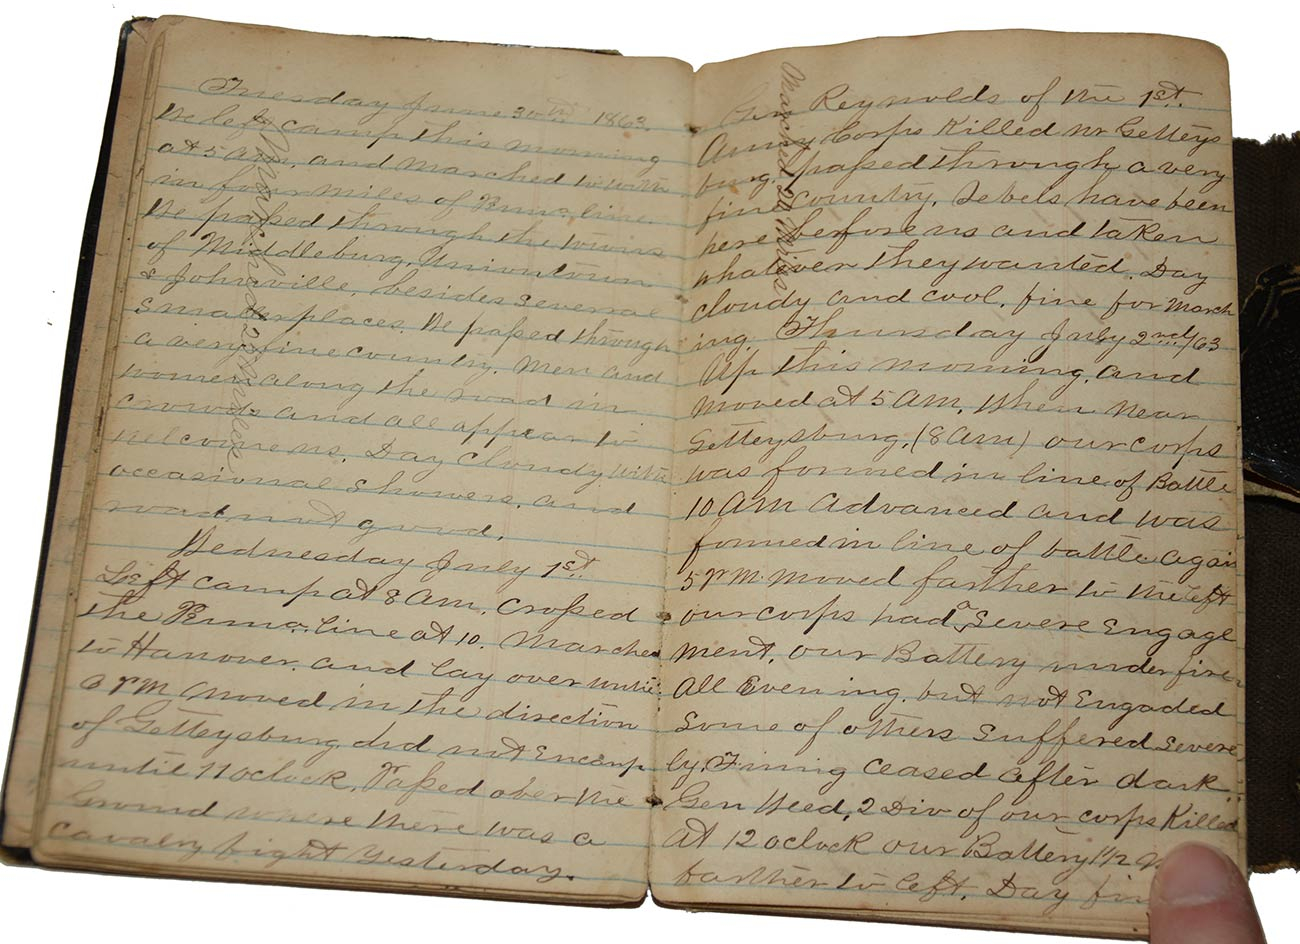 Tuesday June 30th 1863.
We left camp this morning
at 5 am, and marched to with
in four miles of Penna, line
We paſsed through the towns
of Middleburg, Uniontown
& Johnsville, besides several
smaller places. We paſsed through
a very fine country. Men and
women along the road in
crowds and all appear to
welcome us. Day cloudy with
occasional showers, and
road not good.
Wednesday July 1st.
Left camp at 8 am. Croſsed
the Penna. line at 10. Marched
to Hanover, and lay over until
6 PM Moved in the direction
of Getteysburg, did not Encamp
until 11 oclock. Paſsed over the
Ground where there was a
cavalry fight yesterday.
Marched 22 miles
Gen Reynolds of the 1st.
Army Corps Killed nr Getteys
burg. paſsed through a very
fine country. Rebels have been
here before us and taken
whatever they wanted. Day
cloudy and cool. fine for March
ing. Thursday July 2nd/63
Up this morning, and
moved at 5 AM. When near
Getteysburg, (8 am) our corps
was formed in line of Battle
10 AM Advanced and was
formed in line of battle again
5 PM. moved farther to the left
our corps had a Severe Engage
ment, our Battery under fire
All Evening. but not Engaded
Some of others Suffered Severe
ly. Firing ceased after dark
Gen Weed, 2 Div of our corps Killed
At 12 oclock our Battery
farther to left. Day
Marched 20 Miles